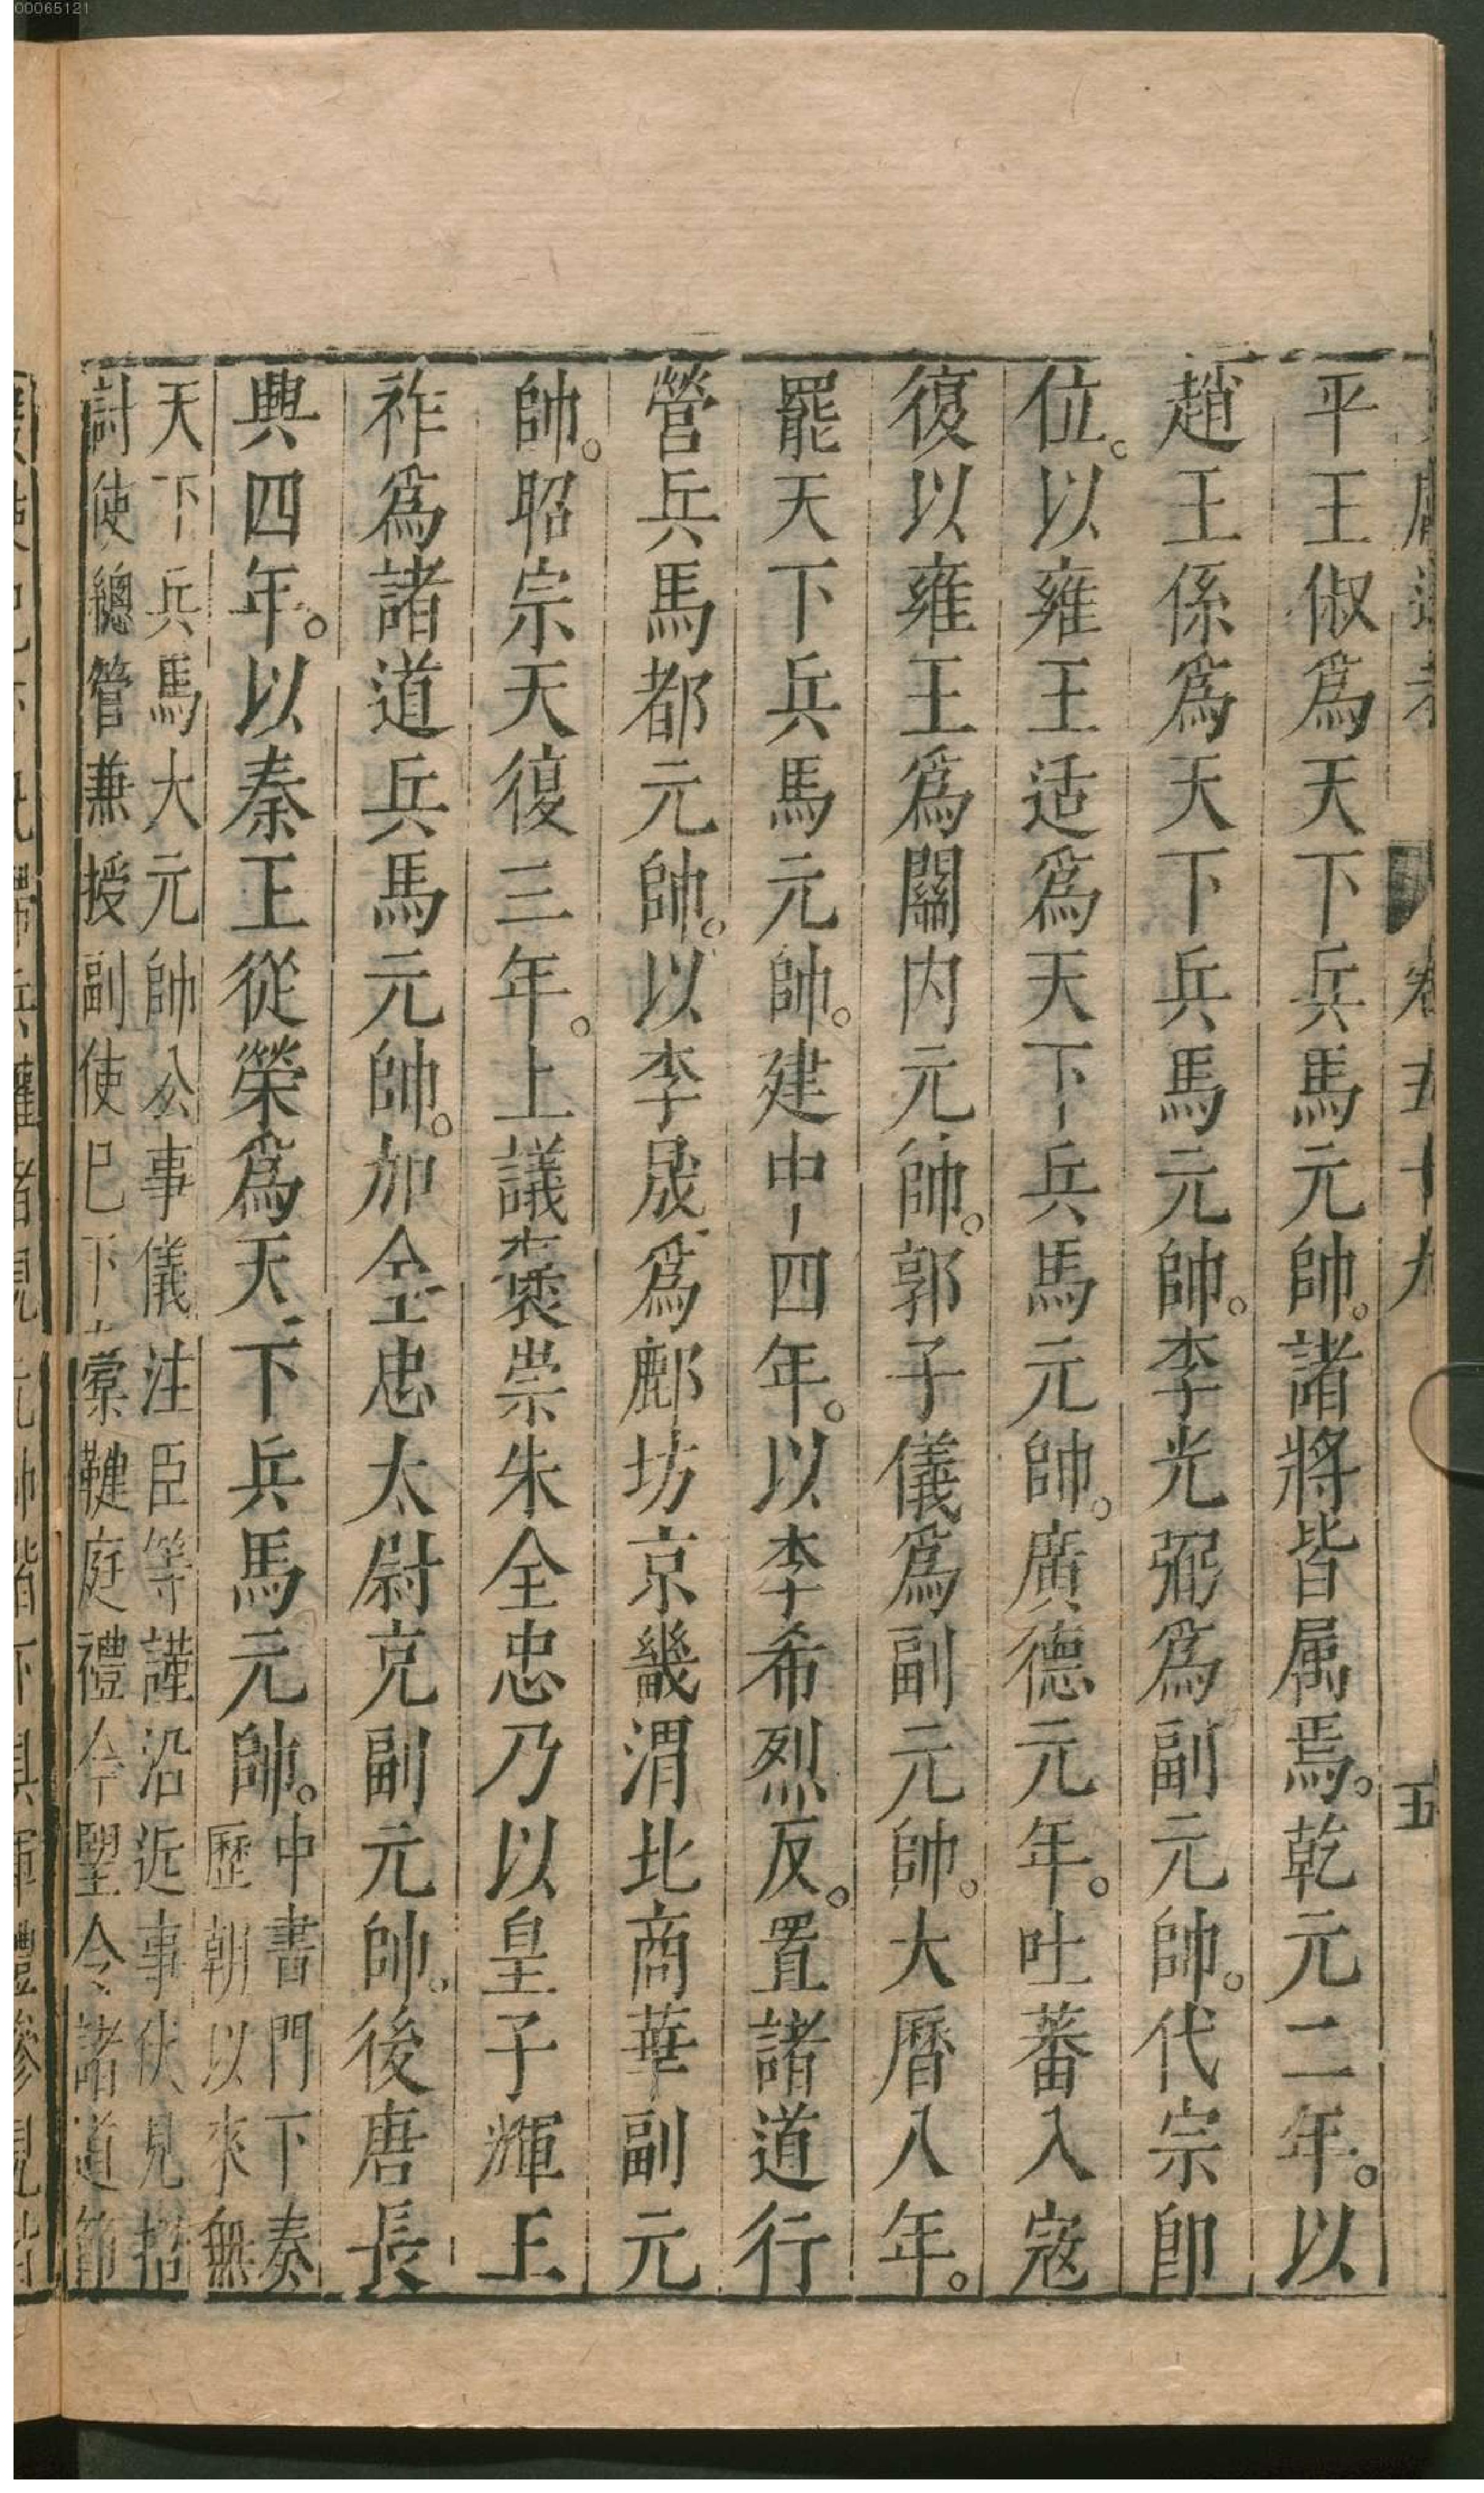 00065121
卷五十九
五
平王俶爲天下兵馬元帥。諸將皆属焉。乾元二年。以
趙王係爲天下兵馬元帥。李光弼爲副元帥。代宗卽
位。以雍王适爲天下兵馬元帥。廣德元年。吐蕃入寇
復以雍王爲關内元帥。郭子儀爲副元帥。大曆八年。
罷天下兵馬元帥。建中四年。以李希烈反。置諸道行
營兵馬都元帥。以李晟爲鄜坊京畿渭北商華副元
帥。昭宗天復三年。上議褒崇朱全忠乃以皇子輝王
祚爲諸道兵馬元帥。加全忠太尉充副元帥。後唐長
興四年。以秦王從榮爲天下兵馬元帥。
中書門下奏
歷朝以來無
天下兵馬大元帥公事儀注臣等謹沿近事伏見招
討使總管兼授副使巳下櫜鞬庭禮今望令諸道節